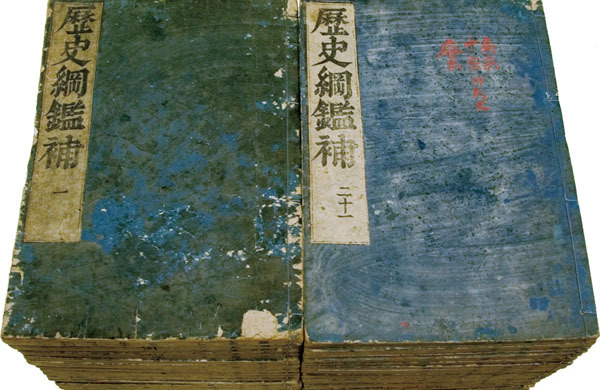 歷史綱鑑補
一
歷史綱鑑補
二十一